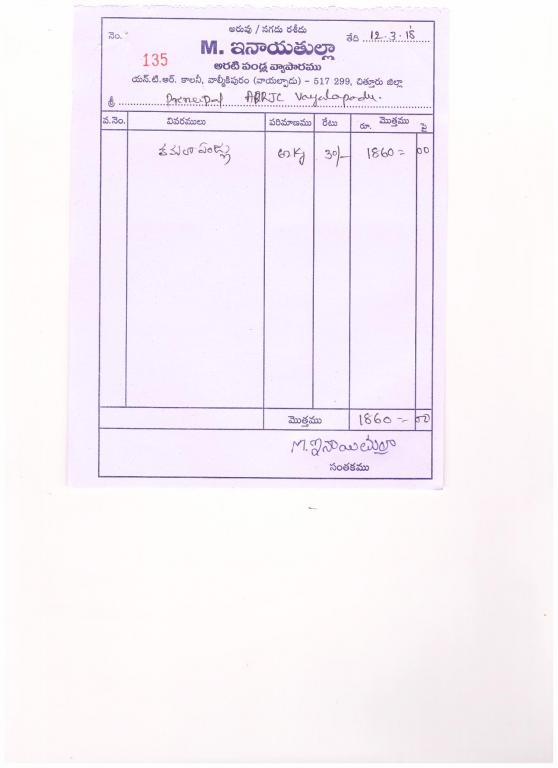 అరువు / నగదు రశీదు
నెం. 135
తేది 12.3.18
M. ఇనాయతుల్లా
అరటి పండ్ల వ్యాపారము
యన్.టి.ఆర్. కాలనీ, వాల్మీకిపురం (వాయల్పాడు) - 517 299, చిత్తూరు జిల్లా
శ్రీ Principal APRJC Vayalapadu.
వ.నెం. వివరములు పరిమాణము రేటు మొత్తము రూ. పై
కమలా పండ్లు Kg 30/- 1860= 00
మొత్తము 1860= 00
M. ఇనాయతుల్లా
సంతకము